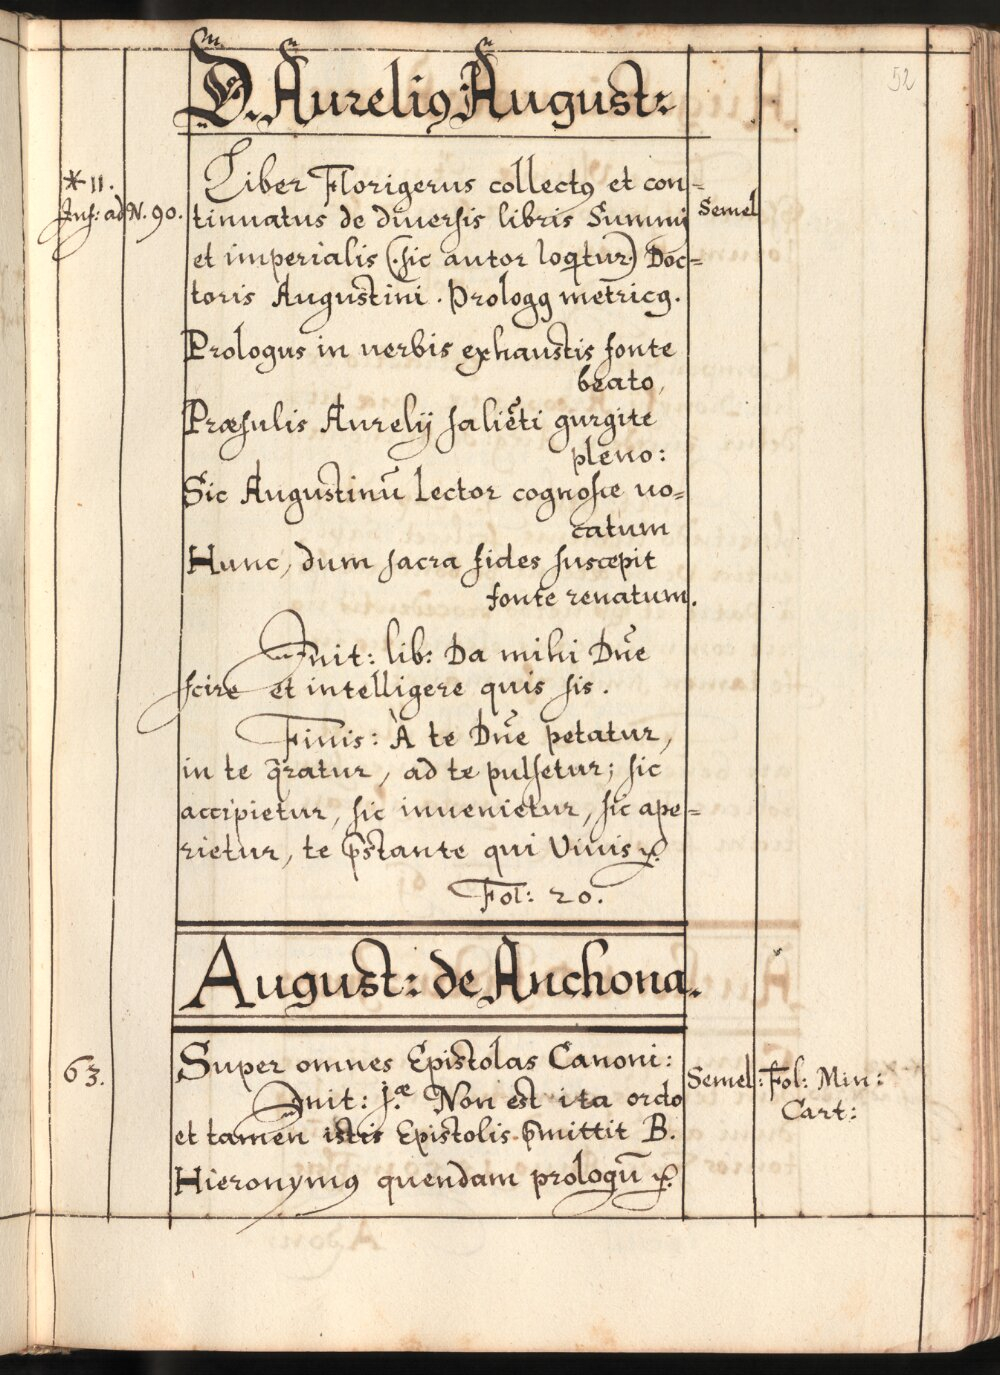 52
D. Aureliꝰ August:
*11.
Ins: ad N. 90.
Liber Florigerus collectꝰ et con=
tinuatus de diuersis libris Summi
Semel
et imperialis (.sic autor loqtur.) Doc=
toris Augustini. Prologꝰ metricꝰ.
Prologus in uerbis exhaustis fonte
beato,
Præsulis Aurelij saliẽti gurgite
pleno:
Sic Augustinũ lector cognosce uo=
catum
Hunc, dum sacra fides suscepit
fonte renatum.
Init: lib: Da mihi Dñe
scire et intelligere quis sis.
Finis: À te Dñe petatur,
in te q̄ratur, ad te pulsetur; sic
accipietur, sic inuenietur, sic ape=
rietur, te p̄stante qui Viuis ꝛc.
Fol: 20.
August: de Anchona.
63.
Super omnes Epistolas Canoni:
Semel: Fol: Min:
Cart:
Init: J.æ Non est ita ordo
et tamen istis Epistolis p̄mittit B.
Hieronymꝰ quendam prologũ ꝛc.